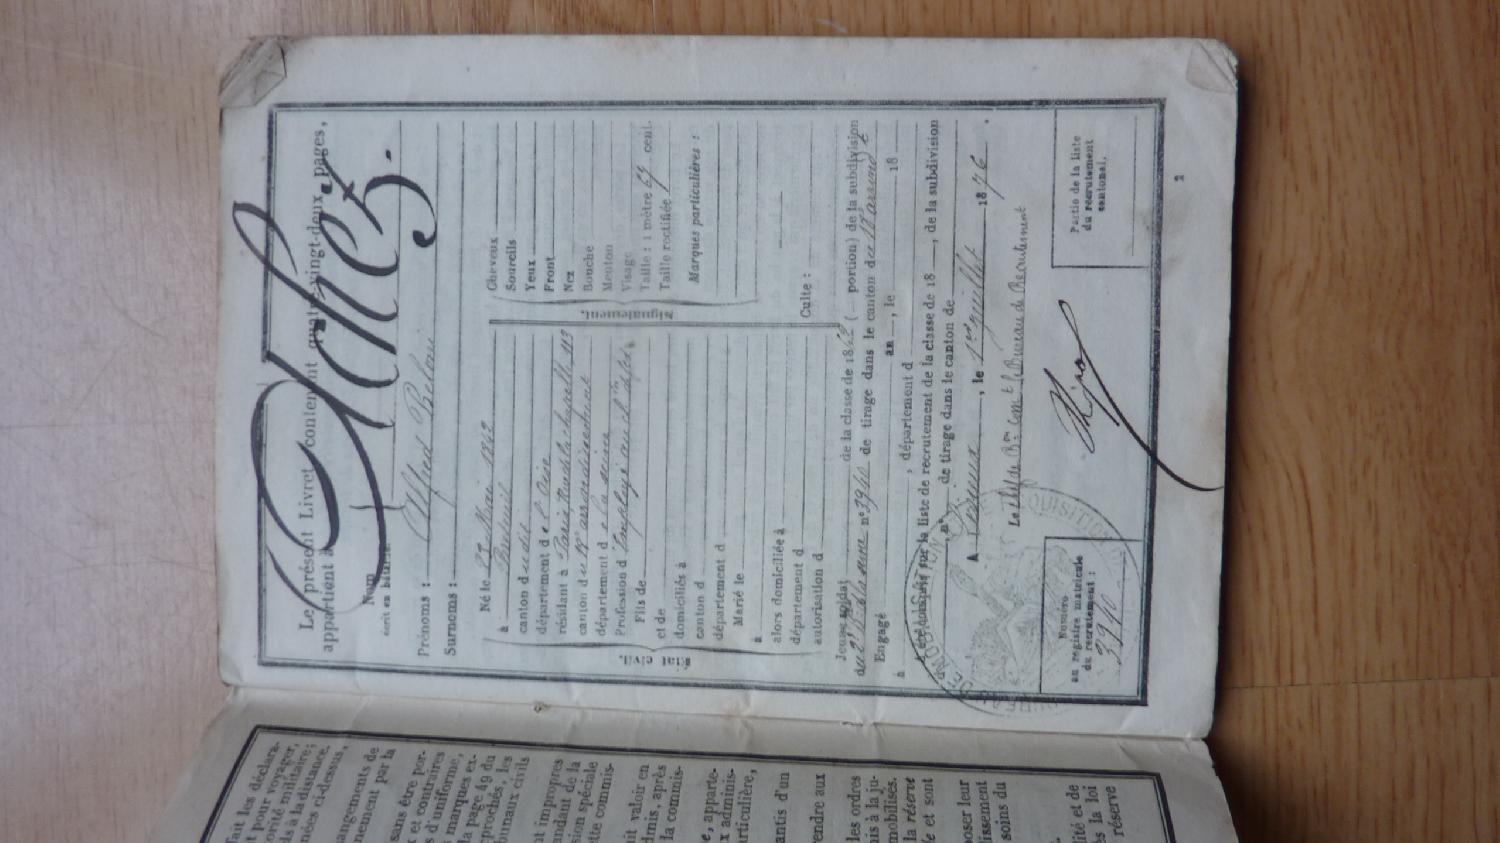 Le présent Livret contenant quatre-vingt-deux pages,
appartient à
Nom
écrit en bâtarde.
Prénoms : Alfred
Surnoms :
État civil.
Né le 22 Mai 1842
à Breteuil
canton dudit
département de l'Oise
résidant à Paris Rue de la chapelle 113
canton du 18e arrondissement
département de la seine
Profession d'employé au ch. de fer
Fils de
et de
domiciliés à
canton d
département d
Marié le
à
alors domiciliée à
département d
autorisation d
Signalement.
Cheveux
Sourcils
Yeux
Front
Nez
Bouche
Menton
Visage
Taille : 1 mètre 67 cent.
Taille rectifiée
Marques particulières :
Culte :
Jeune soldat de la classe de 1862 ( portion) de la subdivision
de la seine n° 3940 de tirage dans le canton du 18
Engagé an , le 18
à , département d
A été compris sur la liste de recrutement de la classe de 18 , de la subdivision
, n° de tirage dans le canton de
A , le 1er Juillet 1876 .
Le chef de Bon Comt le Bureau de Recrutement
Numéro
au registre matricule
du recrutement :
3940
Partie de la liste
du recrutement
cantonal.
1
fait les déclara-
t pour voyager,
orité militaire;
ds à la distance.
nées ci-dessus,
hangements de
nnement par la
sans être por-
x et contraires
s d'uniforme,
s marques ex-
la page 49 du
prochés, les
bunaux civils
nt impropres
andant de la
sion spéciale
ette commis-
it valoir en
dmis, après
la commis-
e, apparte-
x adminis-
articulière,
antis d'un
rendre aux
les ordres
mis à la ju-
mobilisés.
la réserve
le et sont
poser leur
lissement
soins du
lité et de
ès la loi
réserve